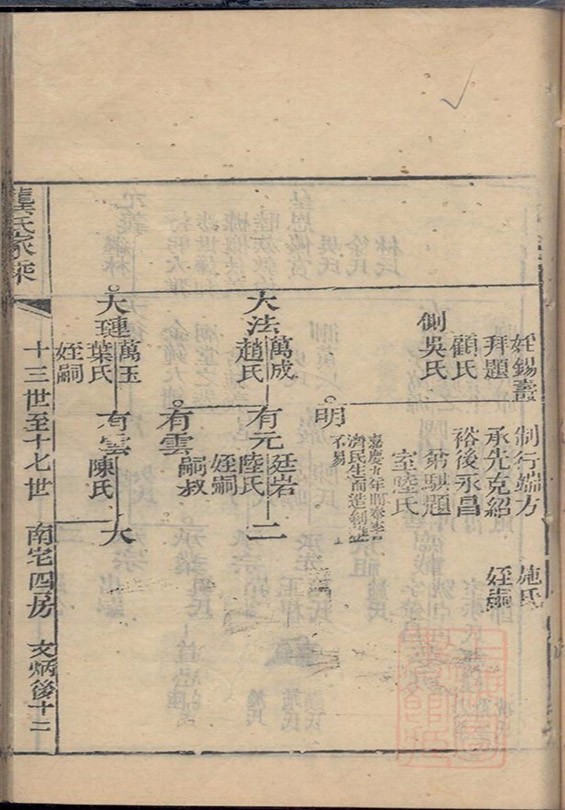 姪錫壽 制行端方 施氏
拜題 承先克紹 姪嗣
顧氏 裕後永昌
側吳氏 第騏題
室陸氏
嘉慶九年
濟民生而造
不易
明
萬成 廷岩
大法趙氏 有元陸氏 二
姪嗣
有雲嗣叔
萬玉
大璉葉氏 有雲陳氏 大
姪嗣
十三世至十七世 南宅四房 文炳後十二
龔氏家乘